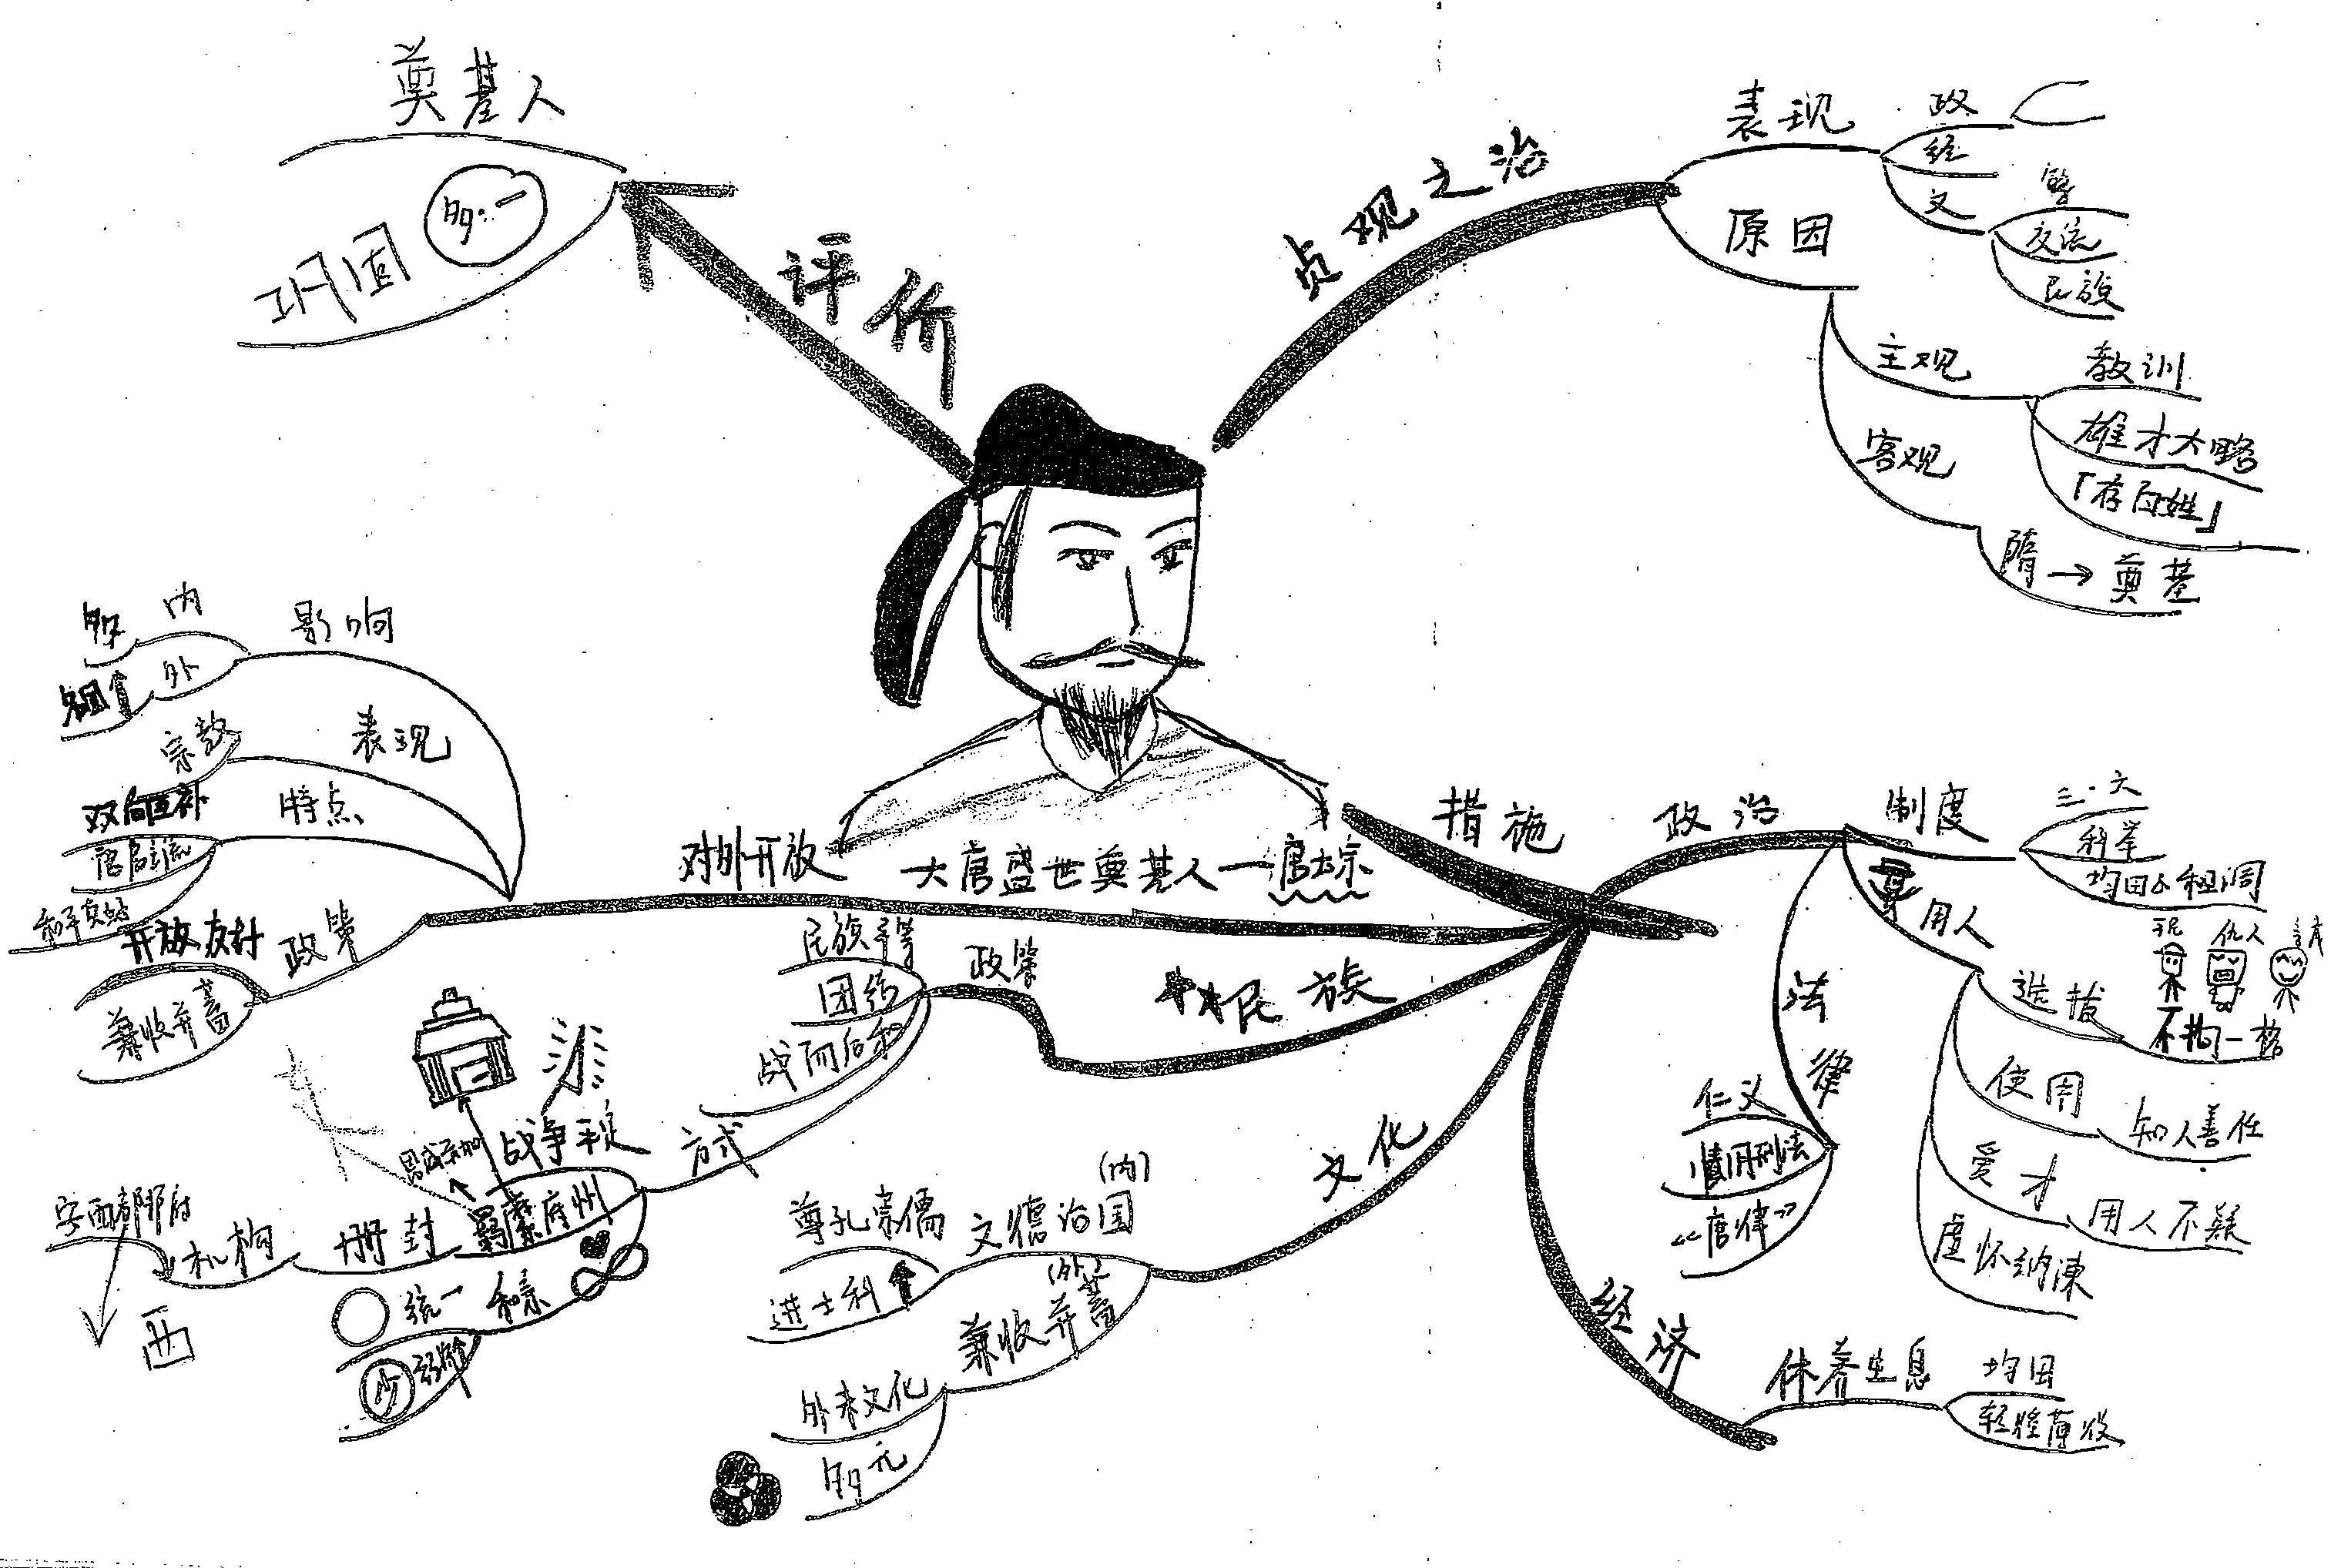 奠基人
巩固
多:一
评价
贞观之治
表现
政
经
文
交流
民族
原因
主观
教训
雄才大略
「存百姓」
客观
隋→奠基
大唐盛世奠基人—唐太宗
措施
政治
制度
三·六
科举
用人
选拔
仇人
不拘一格
使用
知人善任
爱才
用人不疑
虚怀纳谏
法律
仁义
慎用刑法
“唐律”
经济
休养生息
均田
文化
文德治国
(内)
尊孔崇儒
进士科
(外)
兼收并蓄
外来文化
多元
民族
政策
民族平等
团结
战而后和
方式
战争平定
羁縻府州
册封
机构
安西都护府
西
和亲
统一
少
对外开放
影响
内
外
表现
宗教
特点
双向互补
政策
开放方针
兼收并蓄